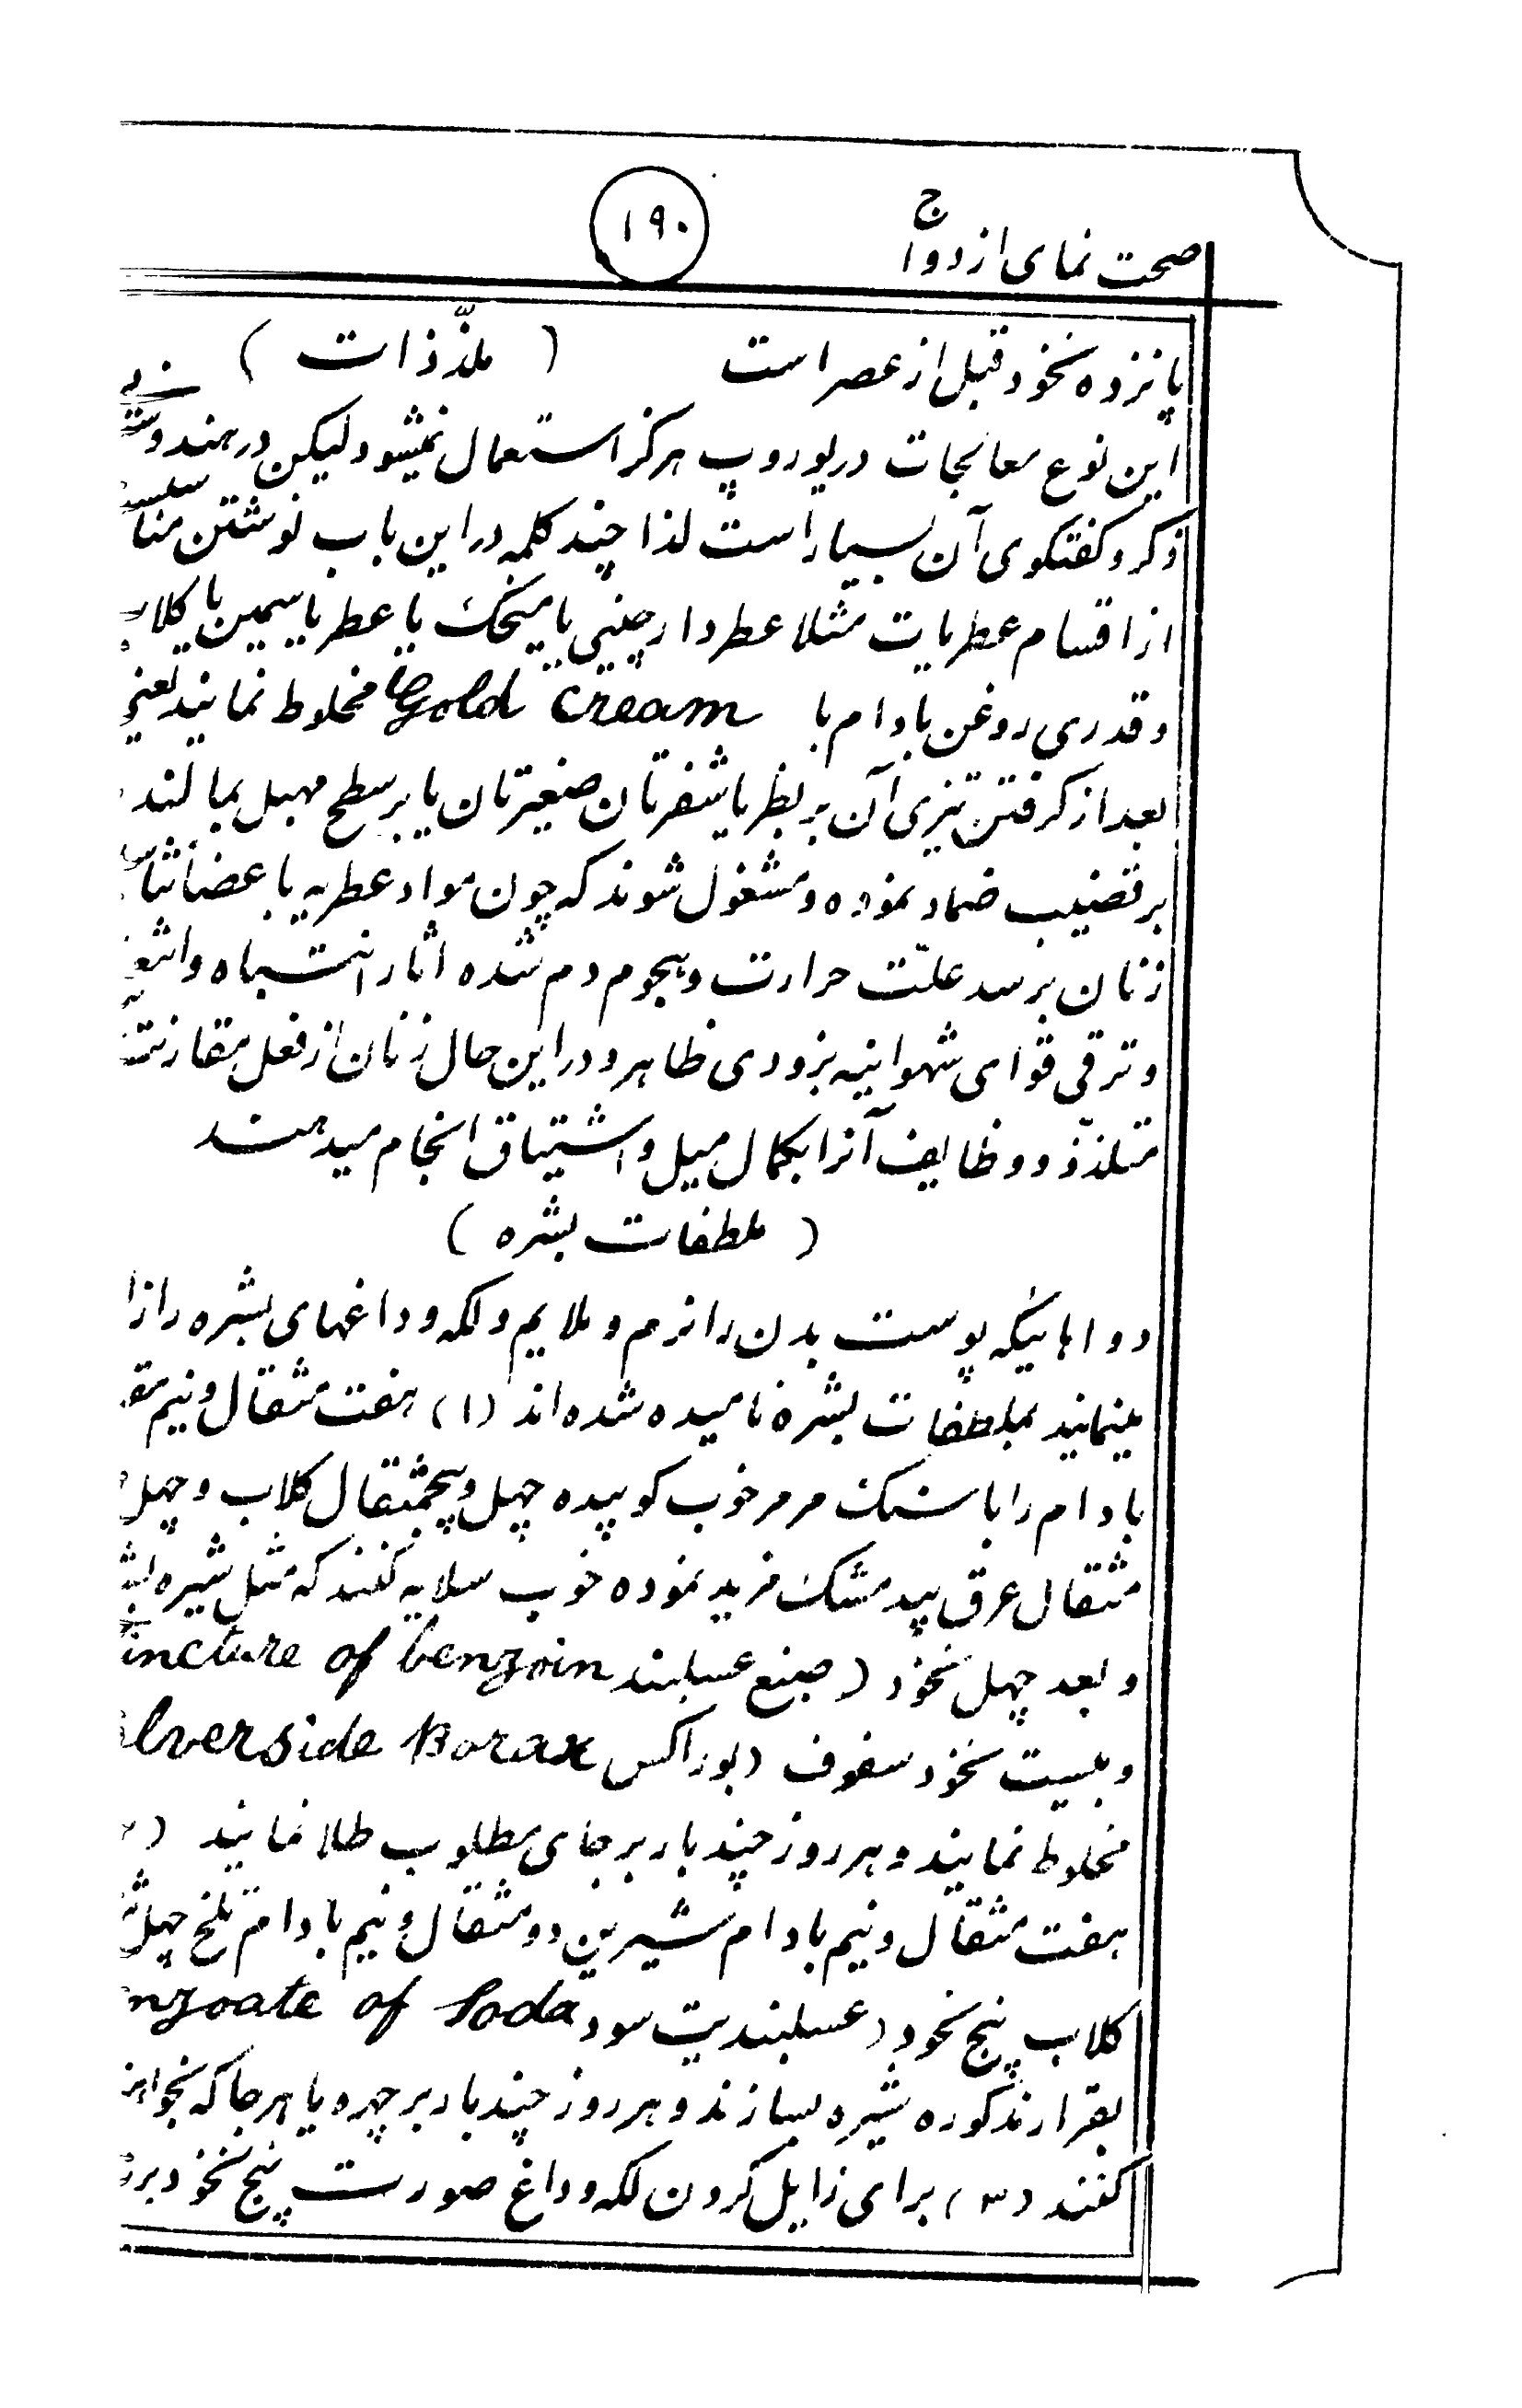 صحت نمای ازدواج
۱۹۰
پانزده نخود قبل از عصر است ( ملذّذات )
این نوع معالجات در یوروپ هرگز استعمال نمیشود لیکن در هندو
ذکر و گفتگوی آن بسیار است لذا چند کلمه در این باب نوشتن منا
از اقسام عطریات مثلا عطر دارچینی یا میخک یا عطر یاسمین یا
و قدری روغن بادام با Gold Cream مخلوط نمایند یعنی
بعد از گرفتن تیزی آن بر بظر یا شفرتان صغیرتان یا بر سطح مهبل بمالند
بر قضیب ضماد نموده و مشغول شوند که چون مواد عطریه باعضا
زنان برسد علّت حرارت و هجوم دم شده اثار انتباه و
و ترقی قوای شهوانیه بزودی ظاهر و در این حال زنان از فعل مقارنت
متلذّذ و وظایف آنرا بکمال میل و اشتیاق انجام میدهند
( ملطفات بشره )
دواهائیکه پوست بدن را نرم و ملایم و لکه و داغهای بشره را زا
مینمایند بملطفات بشره نامیده شده‌اند (۱) هفت مثقال و نیم
بادام را با سنک مرمر خوب کوبیده چهل و پنجمثقال کلاب و چهل
مثقال عرق بید مشک مزید نموده خوب سلایه کنند که مثل شیره
و بعد چهل نخود (صبغ عسلبند incture of benzoin
و بیست نخود سفوف (بوراکس lverside Borax
مخلوط نمایند و هر روز چند بار بر جای مطلوب طلا نمایند (
هفت مثقال و نیم بادام شیرین دو مثقال و نیم بادام تلخ چهل
کلاب پنج نخود (عسلبندیت سود nzoate of Soda
بقرار مذکوره شیره بسازند و هر روز چند بار بر چهره یا هر جا که بخواهند
کنند (۳) برای زایل کردن لکه و داغ صورت پنج نخود